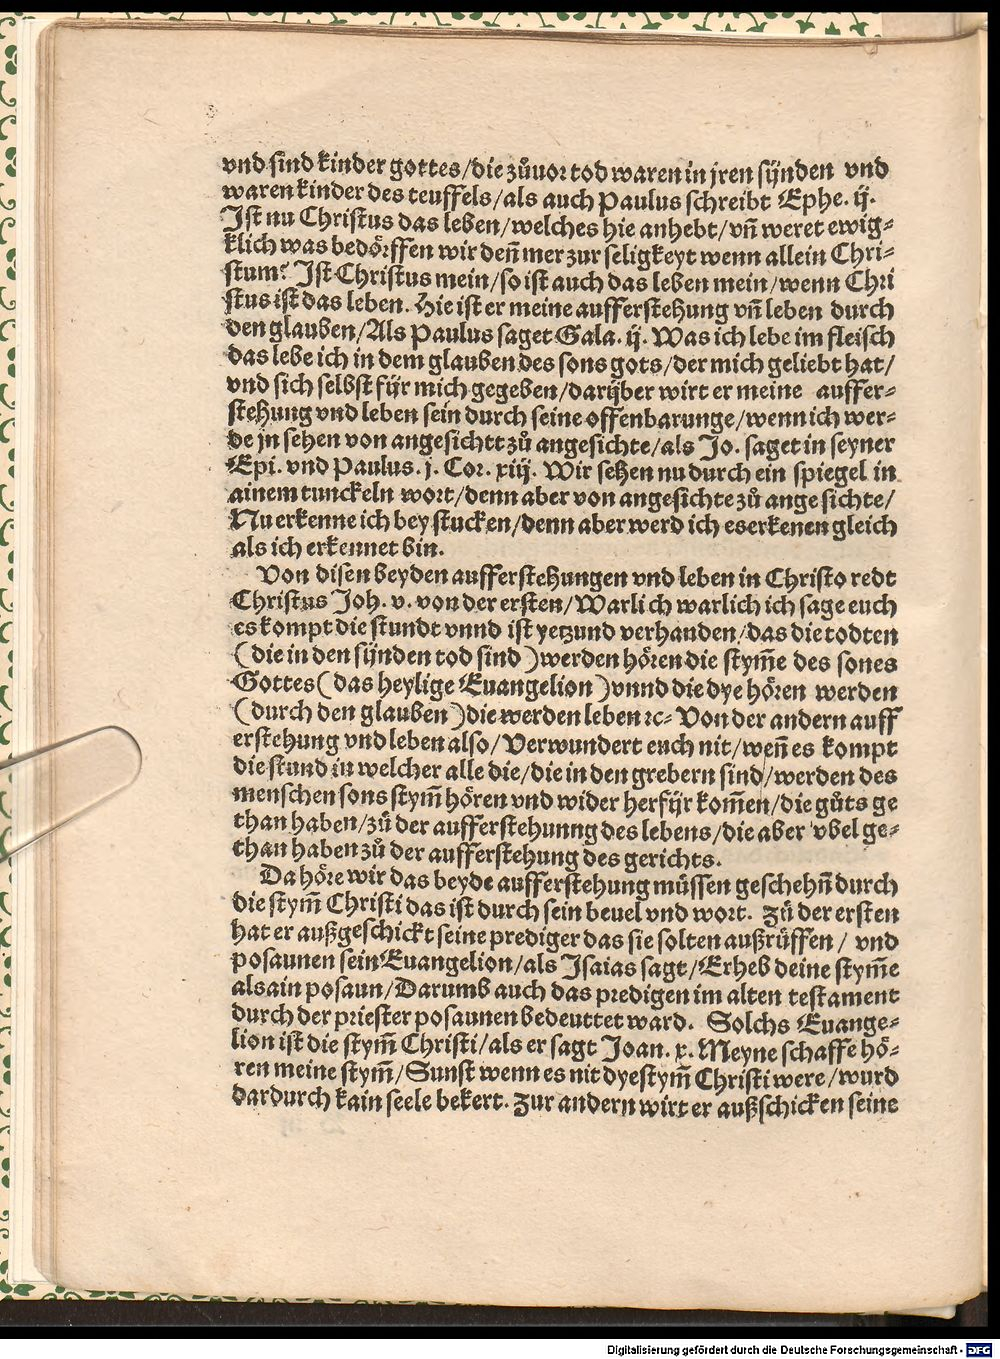 vnd sind kinder gottes/die zůuor tod waren in jren sünden vnd
waren kinder des teuffels/als auch Paulus schreibt Ephe. ij.
Ist nu Christus das leben/welches hie anhebt/vñ weret ewig-
klich was bedörffen wir deñ mer zur seligkeyt wenn allein Chri-
stum? Ist Christus mein/so ist auch das leben mein/wenn Chri
stus ist das leben. Hie ist er meine aufferstehung vñ leben durch
den glauben/Als Paulus saget Gala. ij. Was ich lebe im fleisch
das lebe ich in dem glauben des sons gots/der mich geliebt hat/
vnd sich selbst für mich gegeben/darüber wirt er meine auffer-
stehung vnd leben sein durch seine offenbarunge/wenn ich wer-
de jn sehen von angesichtt zů angesichte/als Jo. saget in seyner
Epi. vnd Paulus. j. Cor. xiij. Wir sehen nu durch ein spiegel in
ainem tunckeln wort/denn aber von angesichte zů angesichte/
Nu erkenne ich bey stucken/denn aber werd ich es erkenen gleich
als ich erkennet bin.
Von disen beyden aufferstehungen vnd leben in Christo redt
Christus Joh. v. von der ersten/Warlich warlich ich sage euch
es kompt die stundt vnnd ist yetzund verhanden/das die todten
(die in den sünden tod sind) werden hören die stym̃e des sones
Gottes (das heylige Euangelion) vnnd die dye hören werden
(durch den glauben) die werden leben ꝛc. Von der andern auff
erstehung vnd leben also/Verwundert euch nit/weñ es kompt
die stund in welcher alle die/die in den grebern sind/werden des
menschen sons stym̃ hören vnd wider herfür kom̃en/die gůts ge
than haben/zů der aufferstehunng des lebens/die aber vbel ge-
than haben zů der aufferstehung des gerichts.
Da höre wir das beyde aufferstehung müssen geschehñ durch
die stym̃ Christi das ist durch sein beuel vnd wort. Zů der ersten
hat er außgeschickt seine prediger das sie solten außrüffen/ vnd
posaunen sein Euangelion/als Isaias sagt/Erheb deine stym̃e
als ain posaun/Darumb auch das predigen im alten testament
durch der priester posaunen bedeuttet ward. Solchs Euange-
lion ist die stym̃ Christi/als er sagt Joan. x. Meyne schaffe hö-
ren meine stym̃/Sunst wenn es nit dye stym̃ Christi were/wurd
dardurch kain seele bekert. Zur andern wirt er außschicken seine
Digitalisierung gefördert durch die Deutsche Forschungsgemeinschaft - DFG